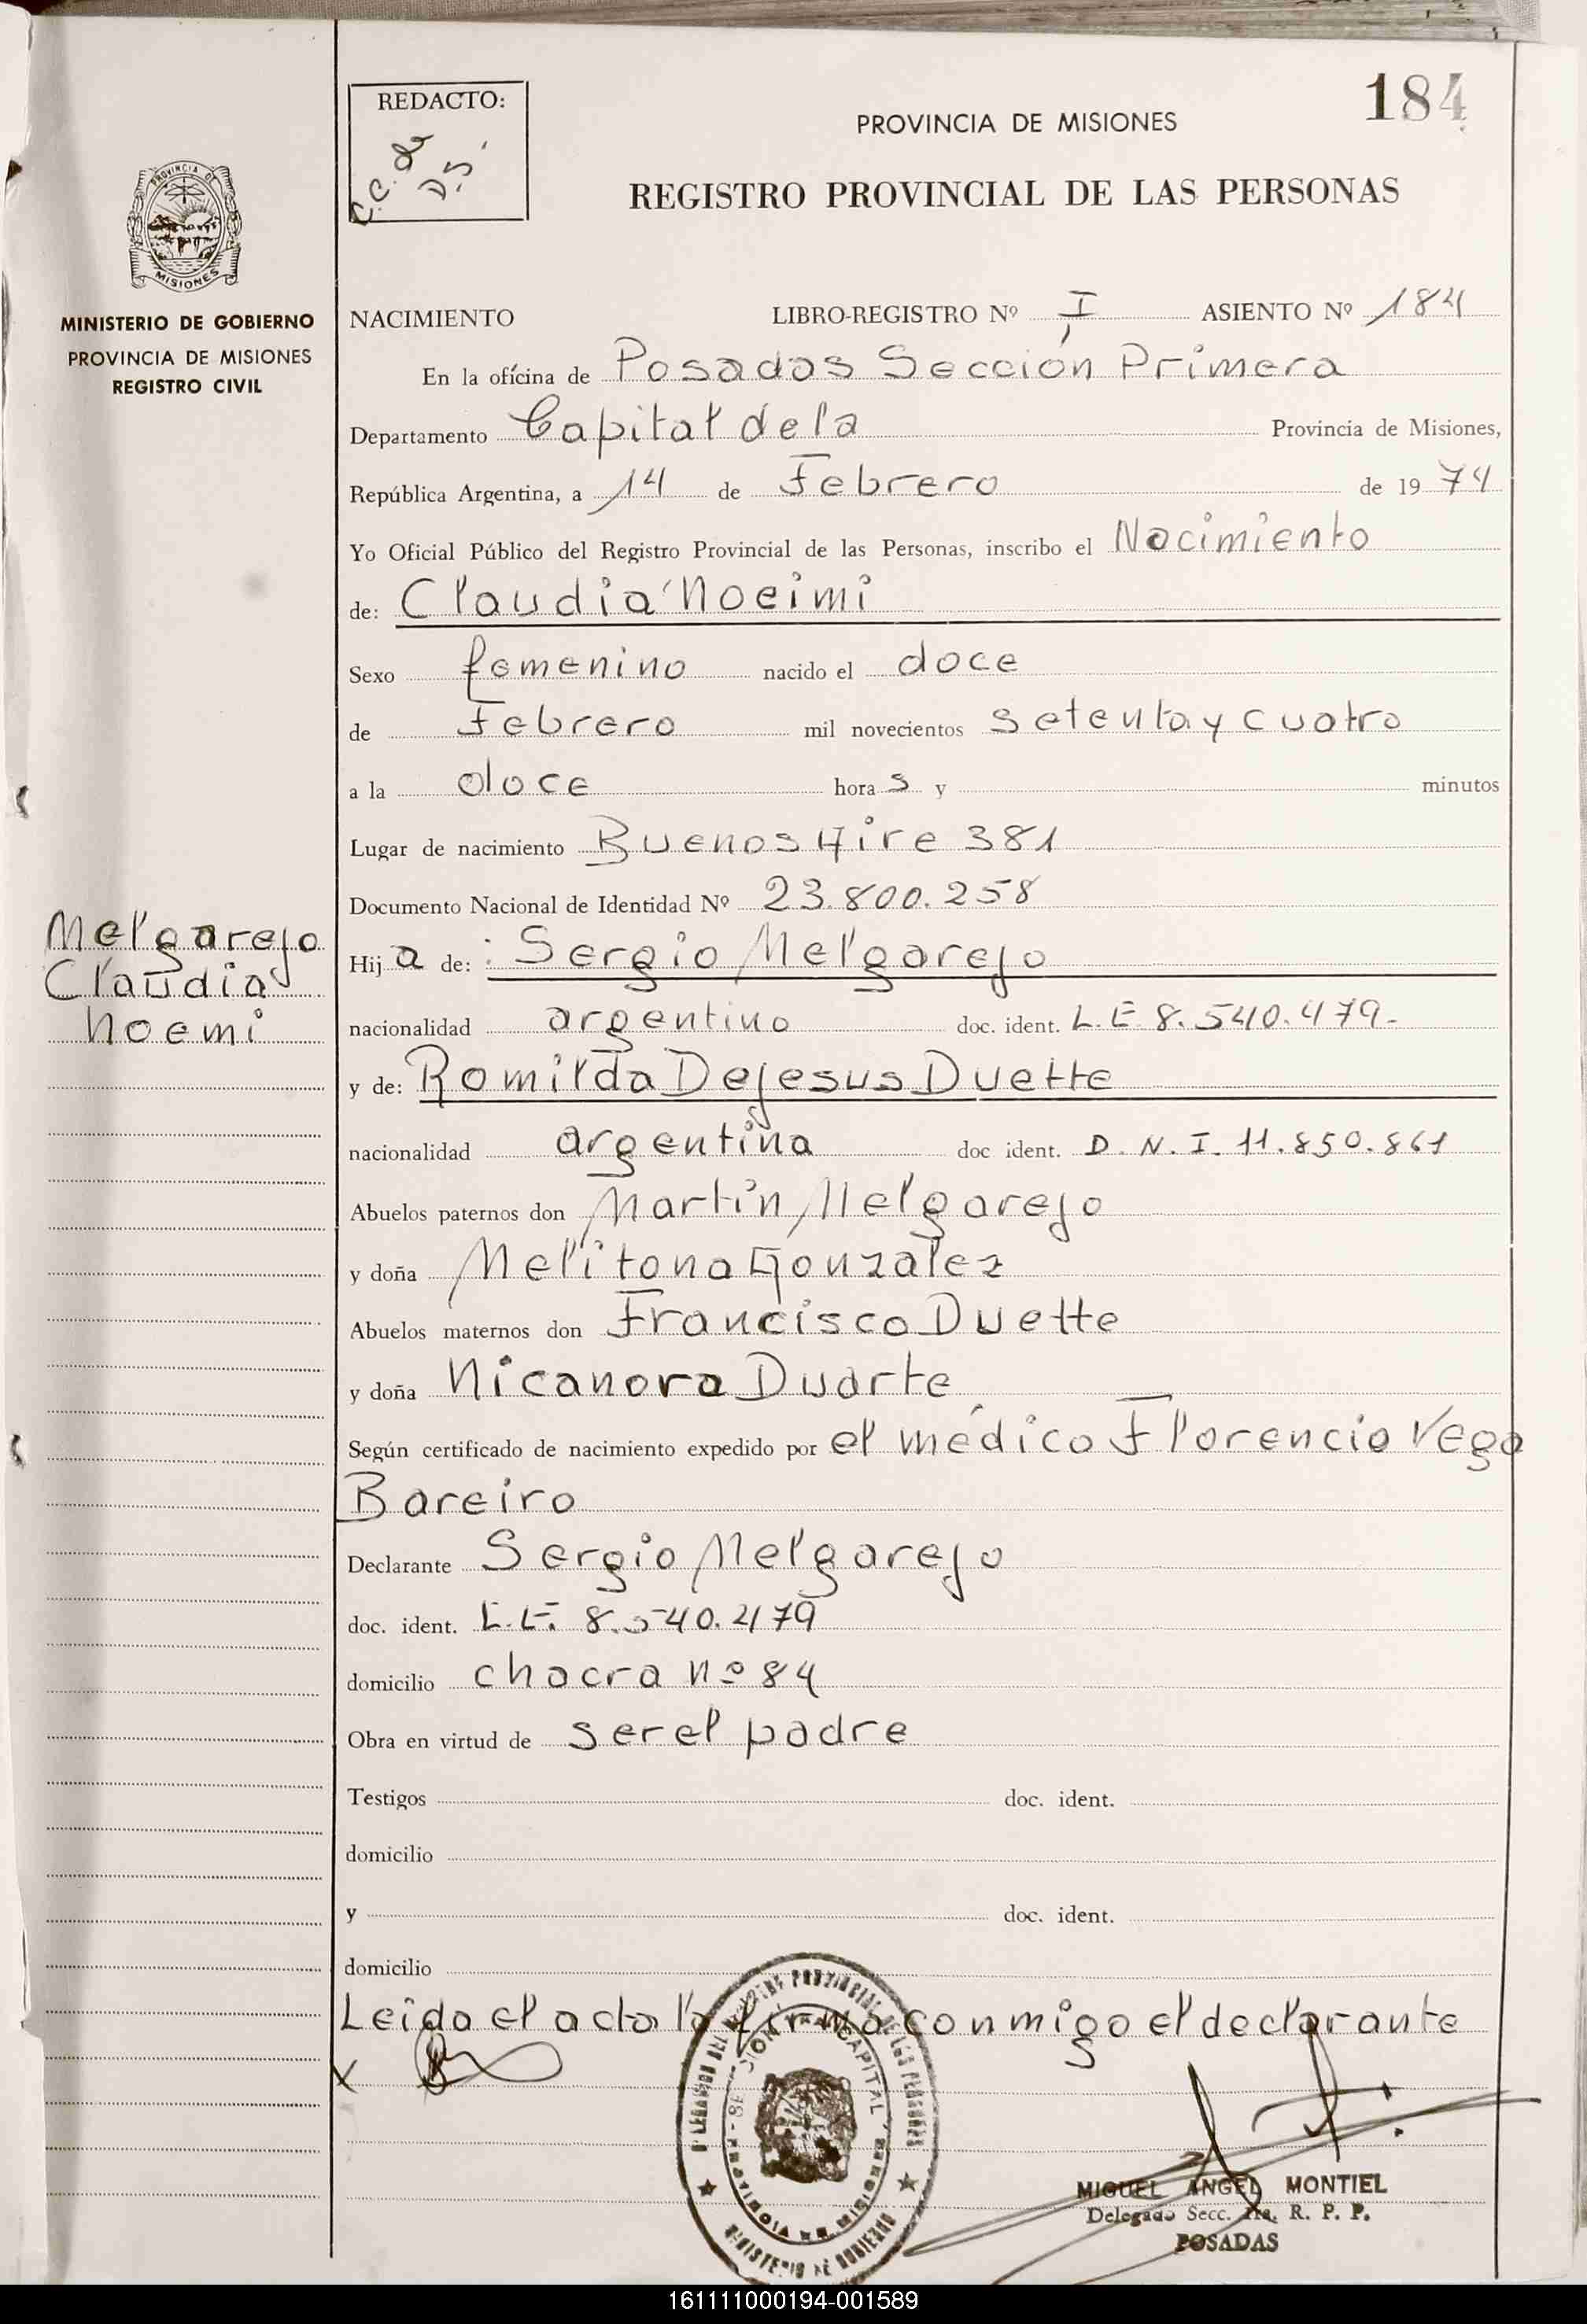 184
REDACTO:
PROVINCIA DE MISIONES
REGISTRO PROVINCIAL DE LAS PERSONAS
PROVINCIA DE
MISIONES
MINISTERIO DE GOBIERNO
PROVINCIA DE MISIONES
REGISTRO CIVIL
NACIMIENTO LIBRO-REGISTRO Nº I ASIENTO Nº 184
En la oficina de Posadas Sección Primera
Departamento Capital de la Provincia de Misiones,
República Argentina, a 14 de Febrero de 19 74
Yo Oficial Público del Registro Provincial de las Personas, inscribo el Nacimiento
de: Claudia Noeimi
Sexo femenino nacido el doce
de Febrero mil novecientos setenta y cuatro
a la doce hora s y minutos
Lugar de nacimiento Buenos Aire 381
Documento Nacional de Identidad Nº 23.800.258
Melgarejo
Claudia
Noemi
Hij a de: : Sergio Melgarejo
nacionalidad argentino doc. ident. L.E 8.540.479.-
y de: Romilda Dejesus Duette
nacionalidad argentina doc ident. D.N.I. 11.850.861
Abuelos paternos don Martín Melgarejo
y doña Melitona Gonzalez
Abuelos maternos don Francisco Duette
y doña Nicanora Duarte
Según certificado de nacimiento expedido por el médico Florencio Vega
Bareiro
Declarante Sergio Melgarejo
doc. ident. L.E. 8.540.479
domicilio chacra nº 84
Obra en virtud de ser el padre
Testigos doc. ident.
domicilio
y doc. ident.
domicilio
Leida el acta la firma conmigo el declarante
x
MIGUEL ANGEL MONTIEL
Delegado Secc. 1ra. R. P. P.
POSADAS
161111000194-001589